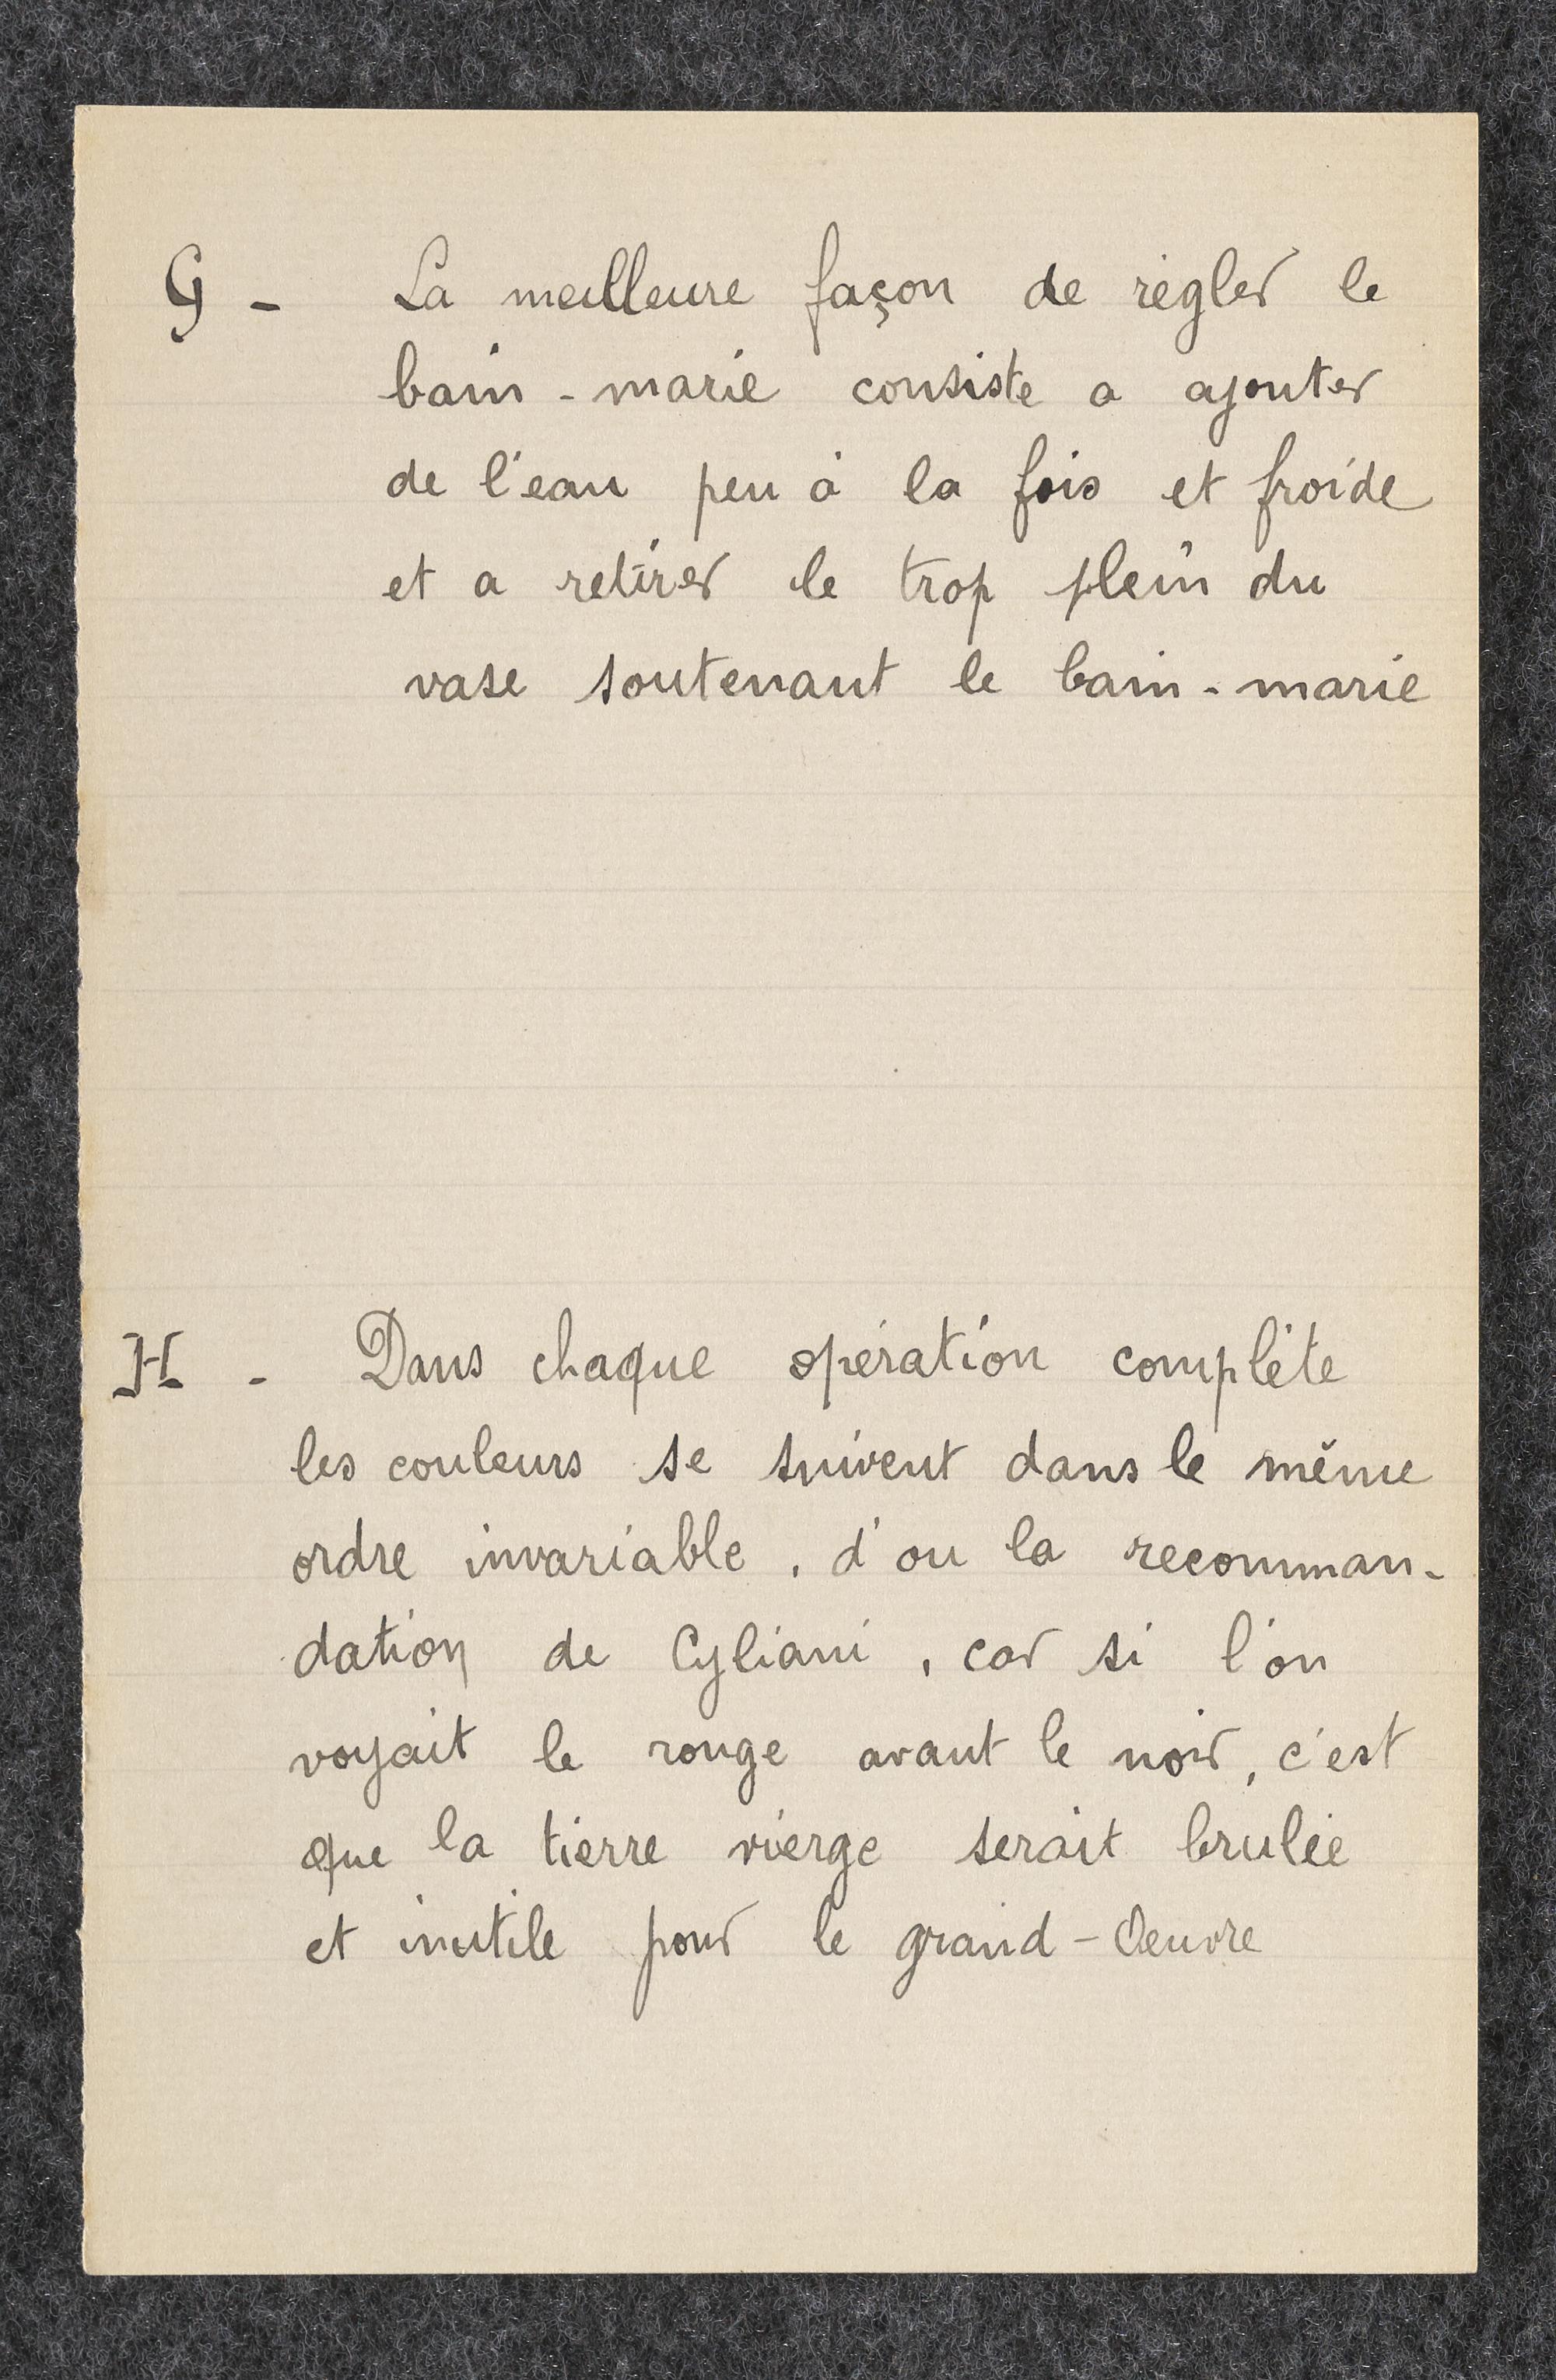 G - La meilleure façon de règler le
bain-marie consiste a ajouter
de l'eau peu à la fois et froide
et a retirer le trop plein du
vase soutenant le bain-marie
H - Dans chaque opération complète
les couleurs se suivent dans le même
ordre invariable, d'ou la recomman-
dation de Cyliani, car si l'on
voyait le rouge avant le noir, c'est
que la tierre vierge serait brulée
et inutile pour le grand-Oeuvre